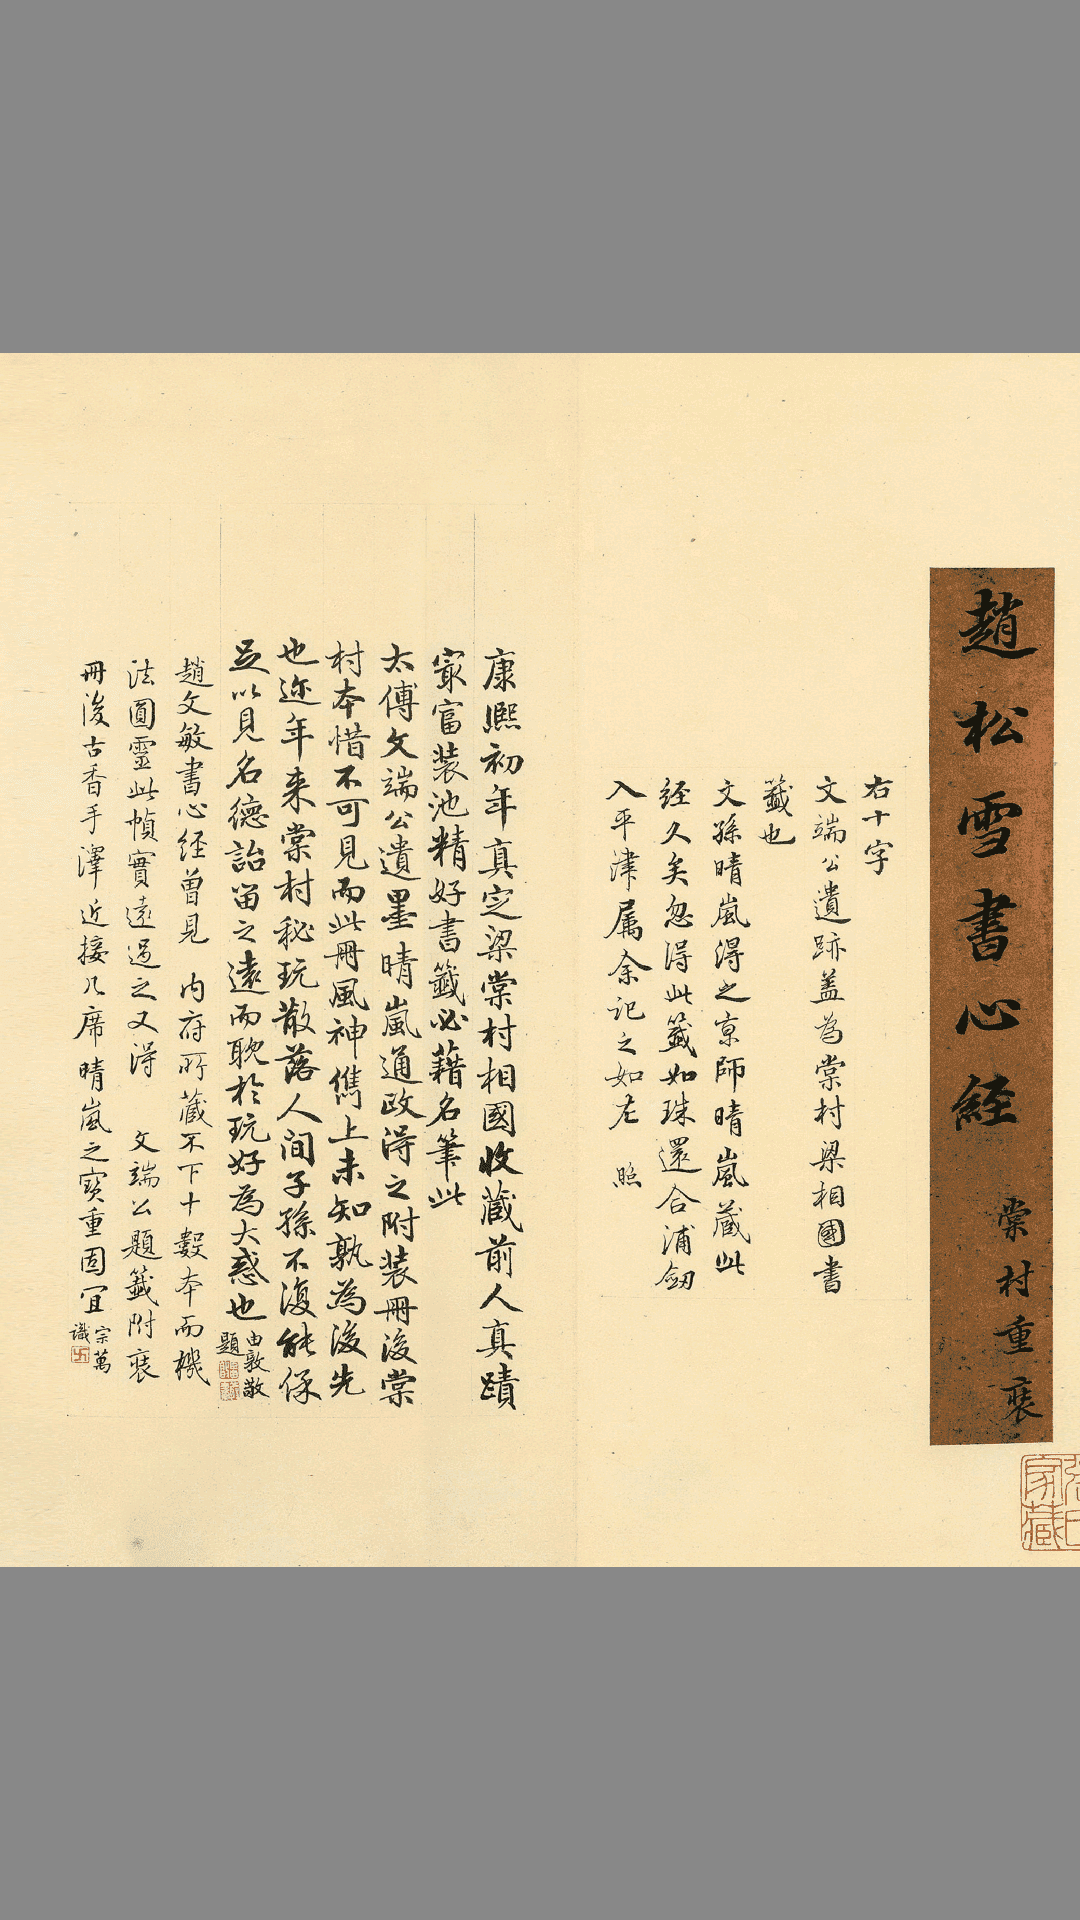 趙松雪書心經
棠村重裝
張氏家藏
右十字
文端公遺跡蓋為棠村梁相國書
籤也
文孫晴嵐得之京師晴嵐藏此
經久矣忽得此籤如珠還合浦劔
入平津属余記之如左 照
康熙初年真定梁棠村相國收藏前人真蹟
寂富裝池精好書籤必藉名筆此
太傅文端公遺墨晴嵐通政得之附裝冊後棠
村本惜不可見而此冊風神儁上未知孰為後先
也迩年来棠村秘玩散落人間子孫不復能保
足以見名德詒留之遠而耽於玩好為大惑也
由敦敬
題
趙文敏書心經曾見 内府所藏不下十數本而機
法圓靈此幀實遠過之又得 文端公題籤附裝
冊後古香手澤近接几席晴嵐之寶重固宜
宗萬
識